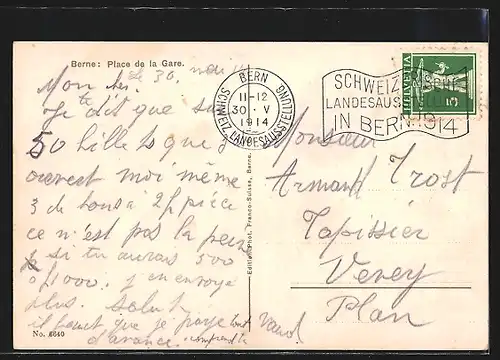 Berne: Place de la Gare.
Le 30. mai 14
Mon cher
Je te dit que sur
50 billets que j
ouvert moi même
3 de bons à 2 f pièce
ce n'est pas la peine
si tu aurais 500
1000. j en envoye
plus. Salut
il faut que je paye tout
d'avance. comprend tu
No. 6640
Edition Phot. Franco-Suisse, Berne.
BERN
11-12
30·V
1914
SCHWEIZ. LANDESAUSSTELLUNG
SCHWEIZERISCHE
LANDESAUSSTELLUNG
IN BERN 1914
HELVETIA
5
Monsieur
Armand Trost
Tapissier
Vevey
Plan
Vaud.